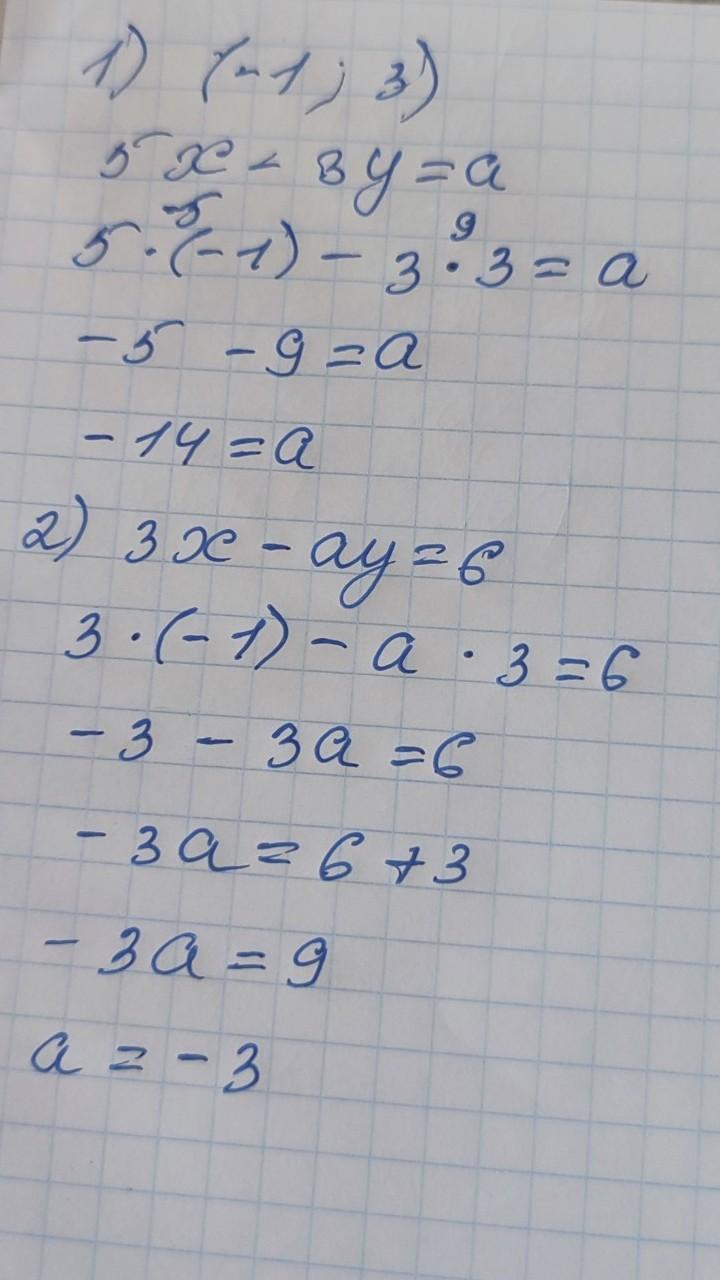 1) (-1; 3)
5x - 3y = a
-5 9
5·(-1) - 3·3 = a
-5 -9 = a
-14 = a
2) 3x - ay = 6
3·(-1) - a·3 = 6
-3 - 3a = 6
-3a = 6 + 3
-3a = 9
a = -3